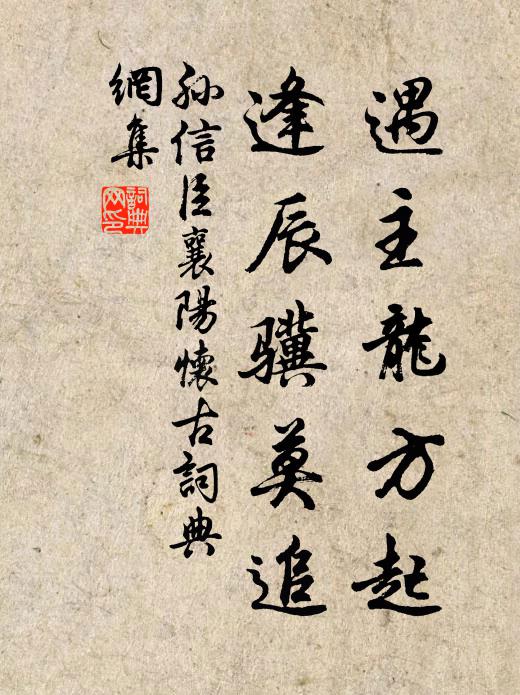 遇主龍方起
逢辰驥莫追
孙信臣襄陽懷古詞典
網集
詞典网印